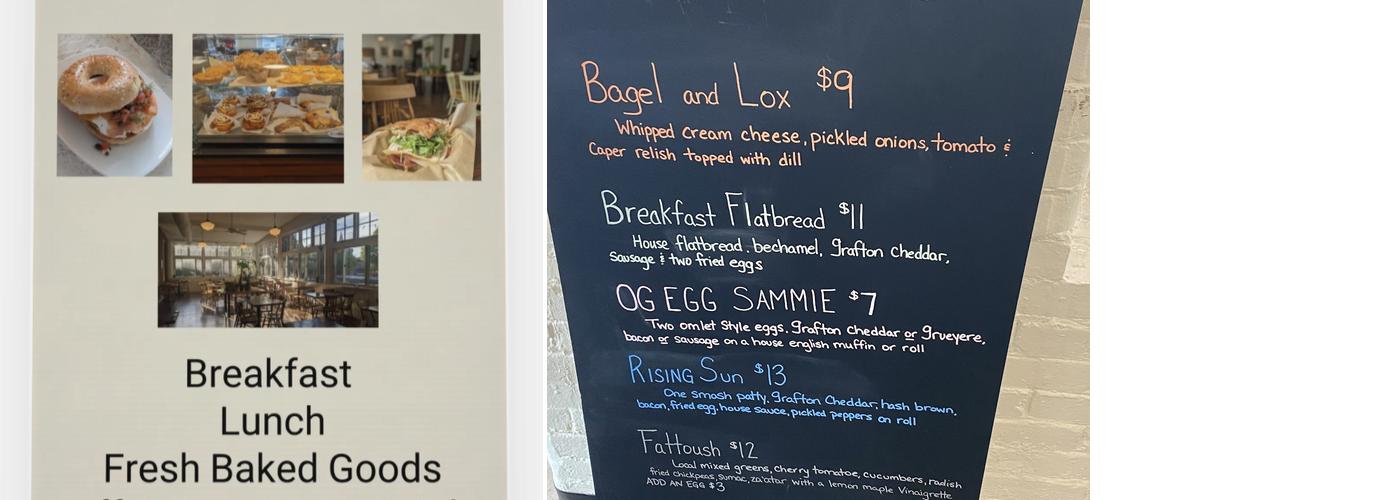 Breakfast
Lunch
Fresh Baked Goods
Bagel and Lox $9
Whipped cream cheese, pickled onions, tomato &
Caper relish topped with dill
Breakfast Flatbread $11
House flatbread, bechamel, Grafton Cheddar,
Sausage & two fried eggs
OG EGG SAMMIE $7
Two omlet Style eggs, Grafton Cheddar or Grueyere,
bacon or sausage on a house english muffin or roll
RISING Sun $13
One smash patty, Grafton Cheddar, hash brown,
bacon, fried egg, house sauce, pickled peppers on roll
Fattoush $12
Local mixed greens, cherry tomatoe, cucumbers, radish
fried chickpeas, sumac, za'atar with a lemon maple Vinaigrette
ADD AN EGG $3